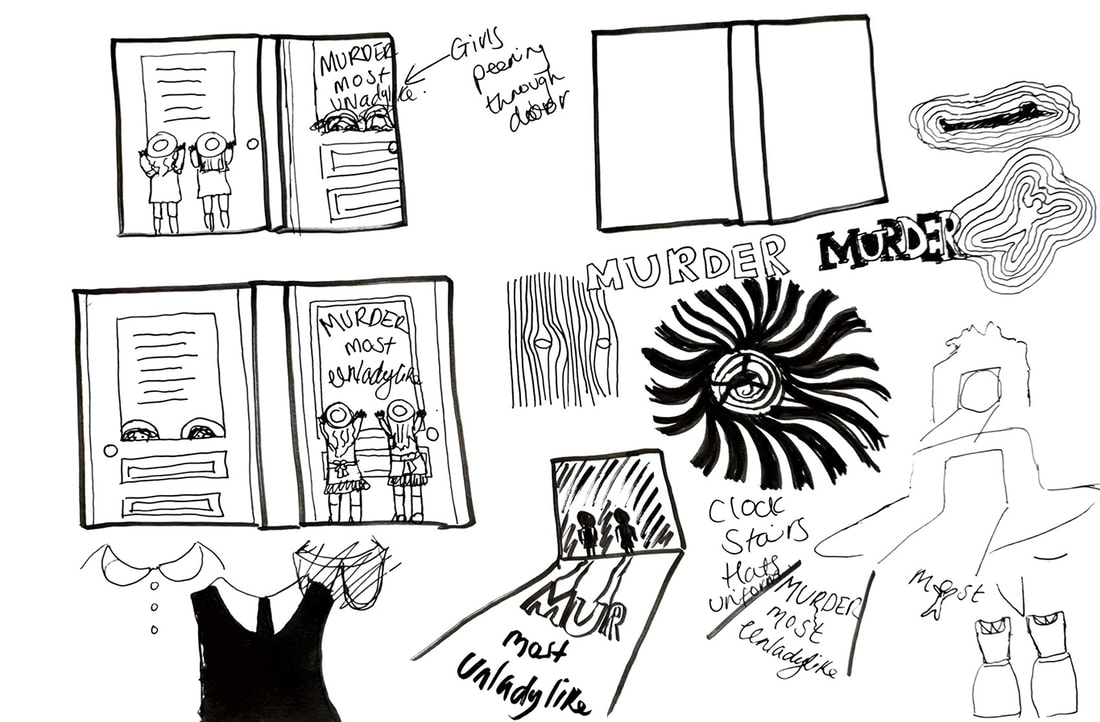 MURDER
most
unladylike.
Girls
peering
through
door
MURDER
MURDER
MURDER
most
unladylike
Clock
Stairs
Hats
uniform
MUR
most
unladylike
MURDER
most
unladylike
most